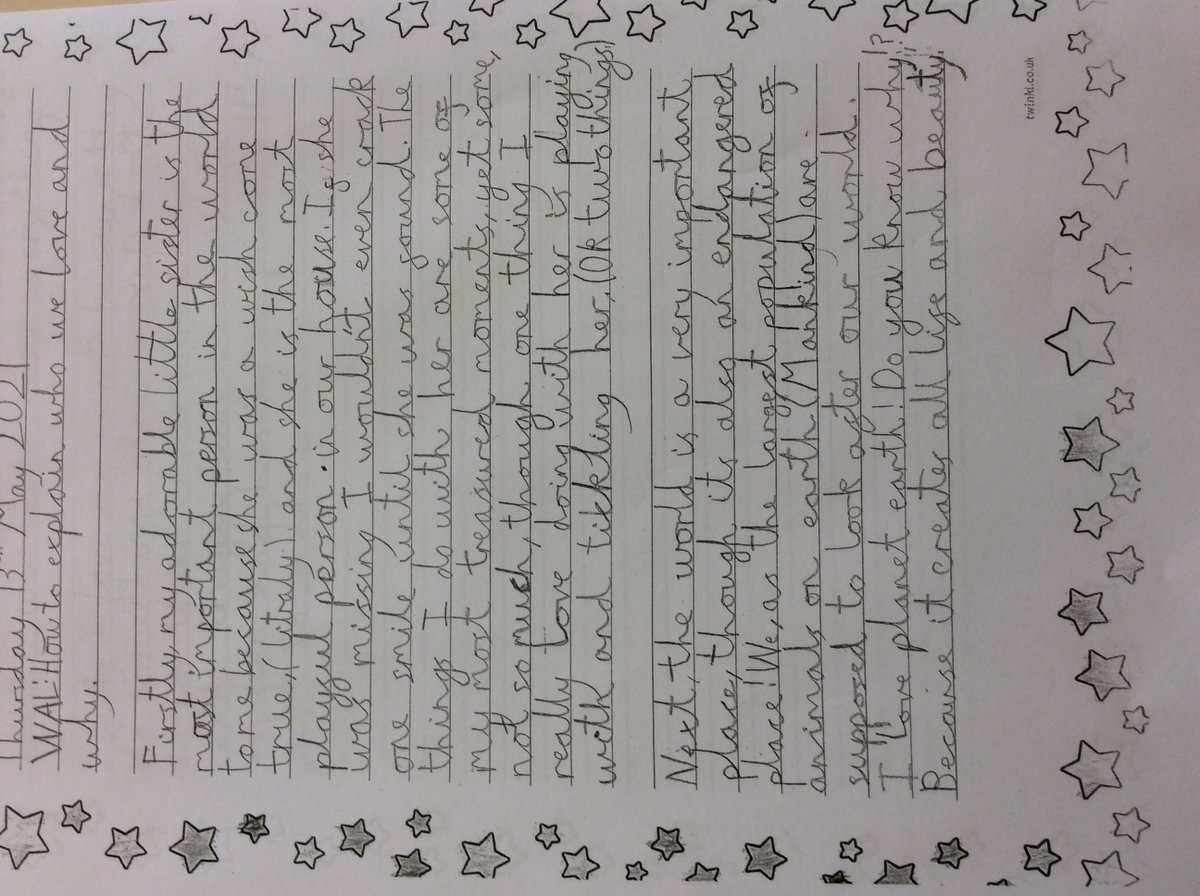 Thursday 13th May 2021
WAL: How to explain who we love and
why.
Firstly, my adorable little sister is the
most important person in the world
to me because she was a wish come
true, (litraly) and she is the most
playful person in our house. If she
was missing I wouldn't even crack
one smile until she was found. The
things I do with her are some of
my most treasured moments, yet some,
not so much, though one thing I
really love doing with her is playing
with and tikkling her, (OK two things)
Next, the world is a very important
place, though its also an endangered
place! We, as the largest population of
animals on earth (Mankind) are
supposed to look after our world.
I love planet earth! Do you know why!?
Because it creates all life and beauty!!
twinkl.co.uk